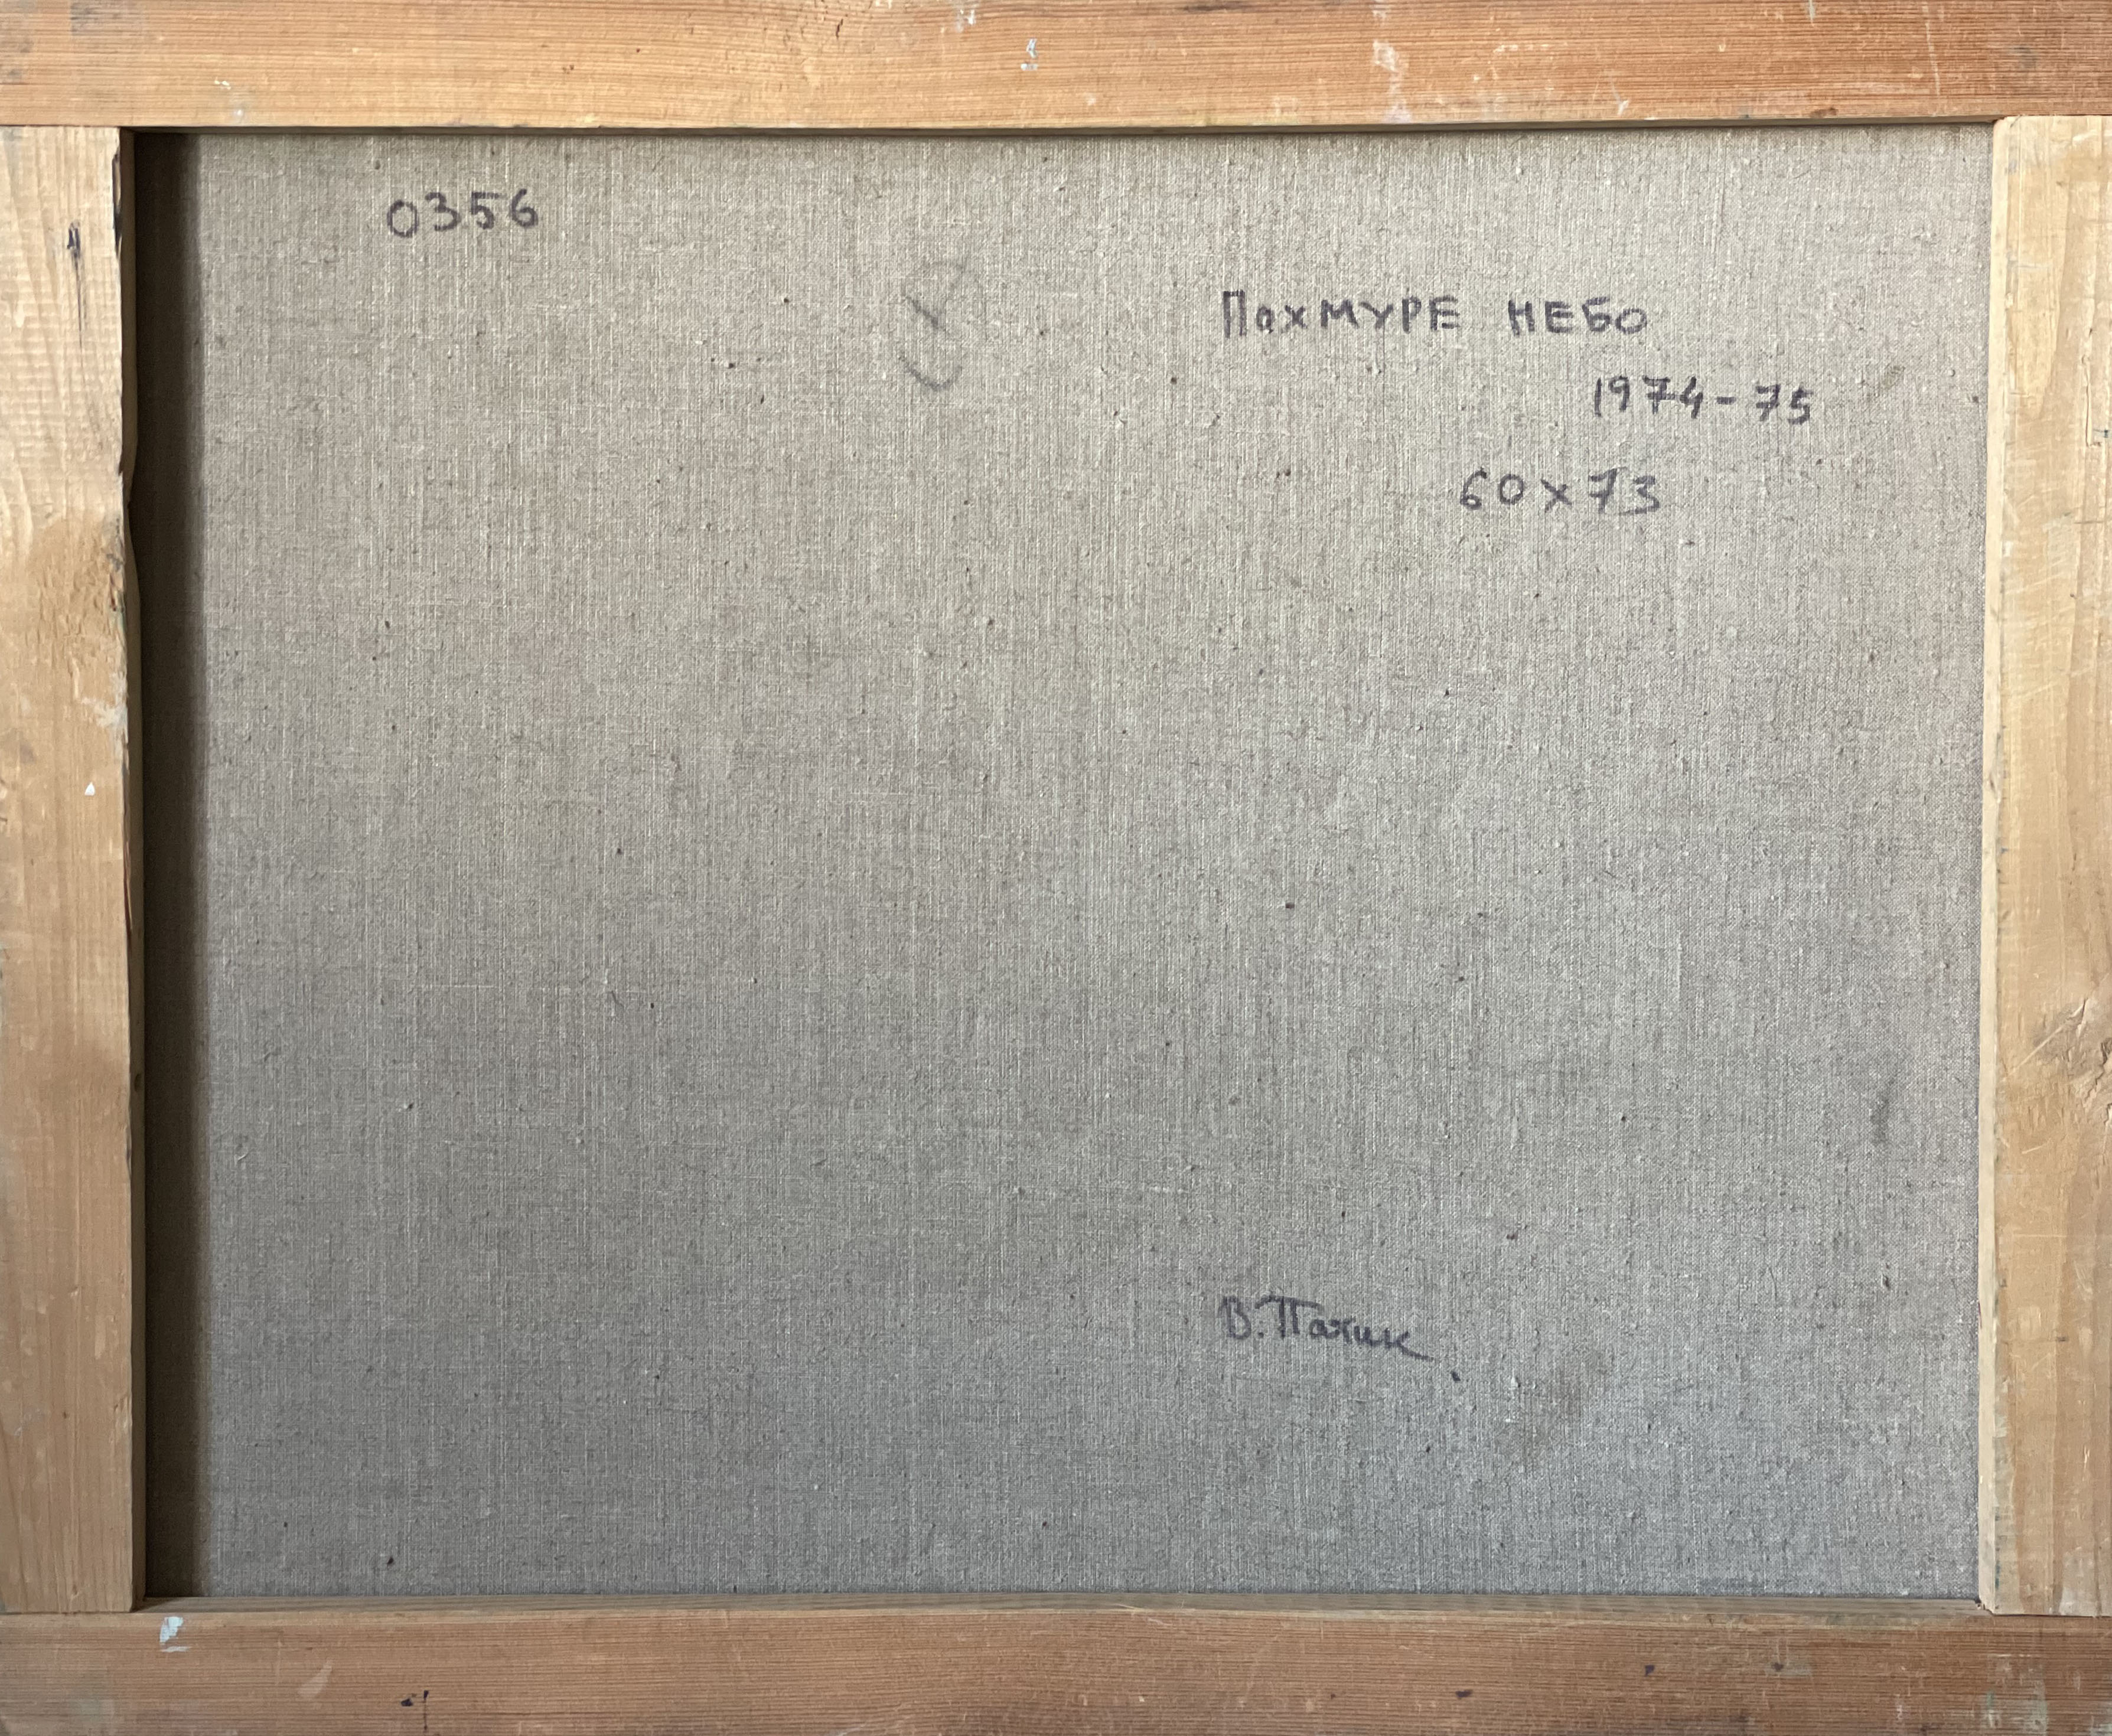 0356
Похмуре небо
1974-75
60x73
В. Патик